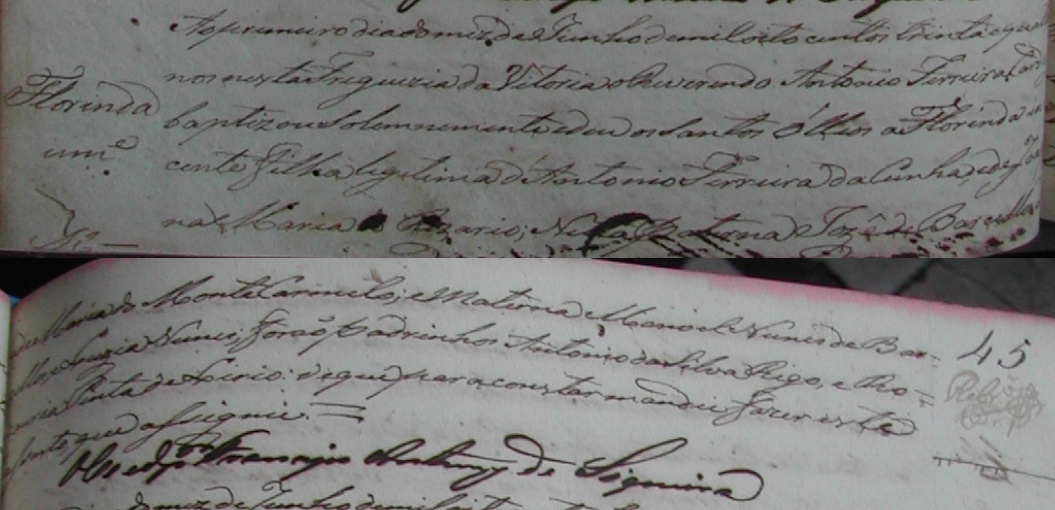 Ao primeiro dia do mez de Junho de mil oito centos trinta e qua
nos nesta Freguezia da Vitoria o Reverendo Antonio Ferreira
Florinda
baptizou solemnemente e deu os Santos Olleos a Florinda in
cente Filha legitima d'Antonio Ferreira da Cunha, e de Joa
na Maria Rozario; Netta Paterna Jozê de Barcellos
de Maria do Monte Carmelo; e Materna Manoel Nunes de Bar=
cellos, Luzia Nunes, forão Padrinhos Antonio da Silva Rigo, e
45
Pinta de de que para constar mandei fazer este
que assignei.
Francisco Antunes de Siqueira
do mez de Junho de mil oit